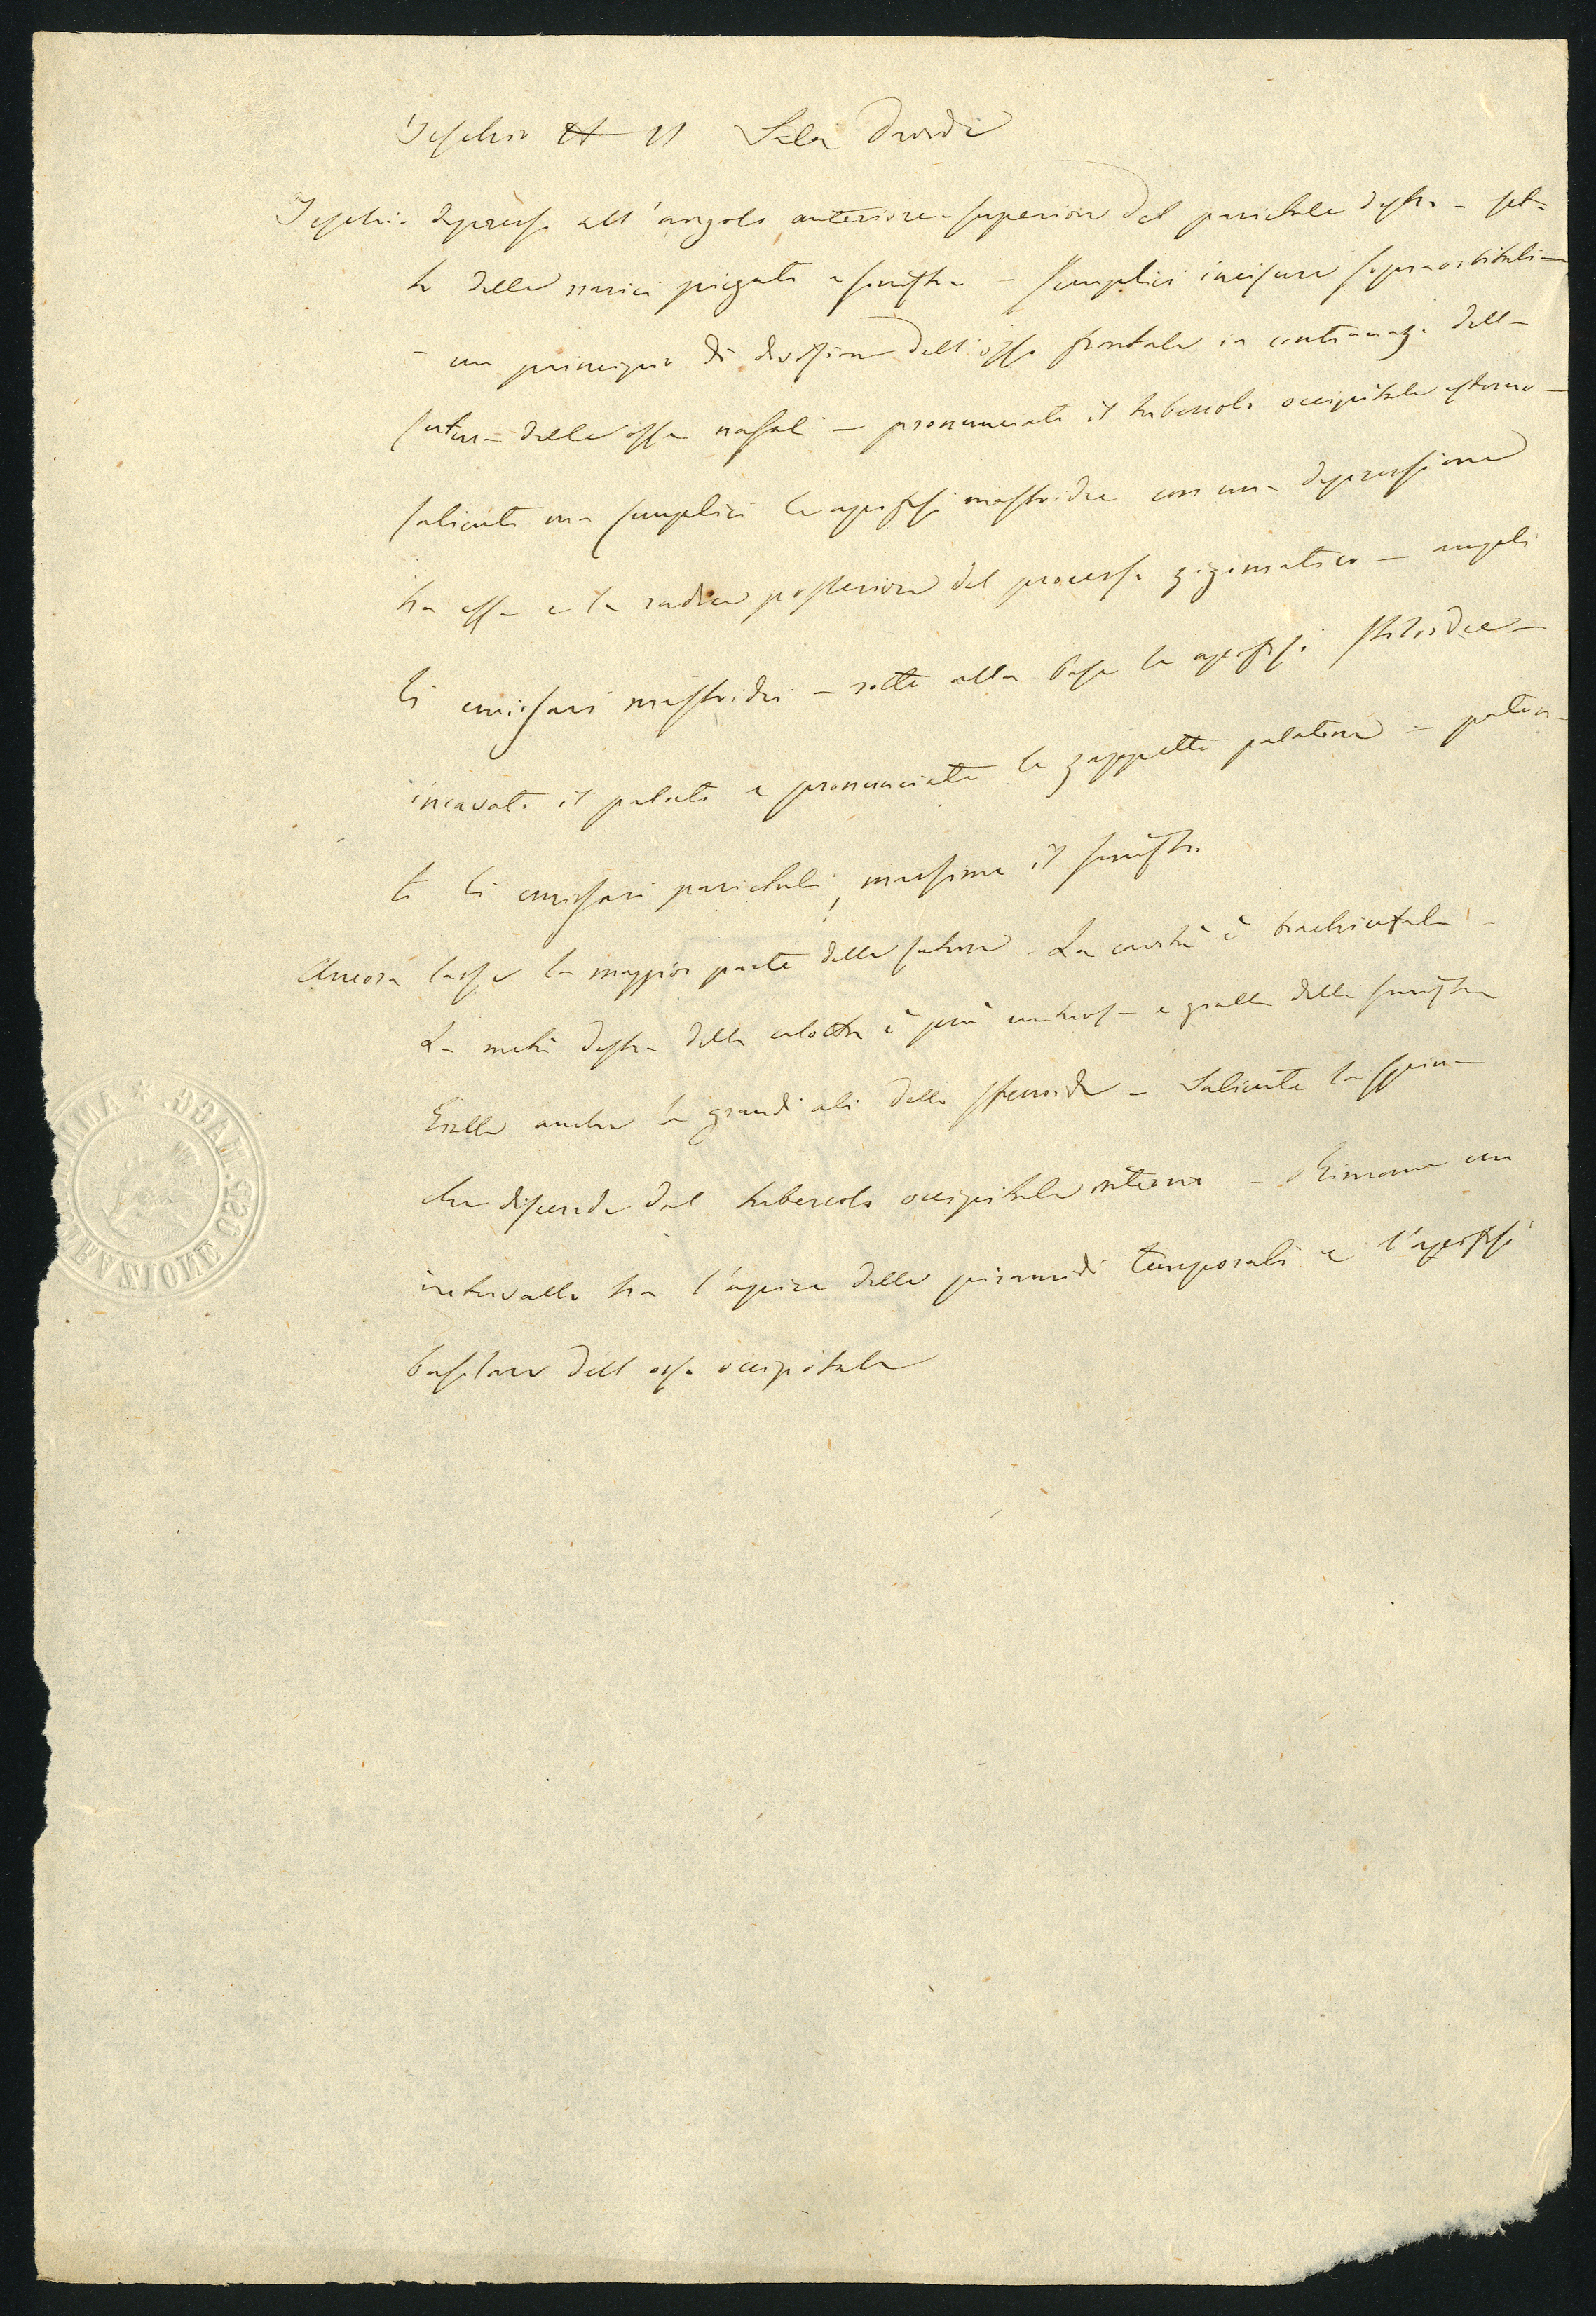 Teschio N 11 Sala Davide
Teschio depresso all'angolo anteriore-superiore del parietale destro - set-
to delle narici piegato a sinistra - semplici incisure sopraorbitali -
- un principio di divisione dell'osso frontale in continuaz. della
sutura delle ossa nasali - pronunciato il tubercolo occipitale esterno -
salienti ma semplici le apofisi mastoidee con una depressione
tra essa e la radice posteriore del processo zigomatico - ampli
li emissari mastoidei - rotte alla base le apofisi stiloidee -
incavato il palato e pronunciate le zappette palatine - paten-
ti li emissari parietali, massime il sinistro
Ancora lasse la maggior parte delle suture. La cavità è brachicefala -
La metà destra della calotta è più e gialla della sinistra
Gialle anche le grandi ali dello sfenoide - Saliente la spina
che discende dal tubercolo occipitale interno - Rimane un
intervallo tra l'apice delle piramidi temporali e l'apofisi
basilare dell osso occipitale